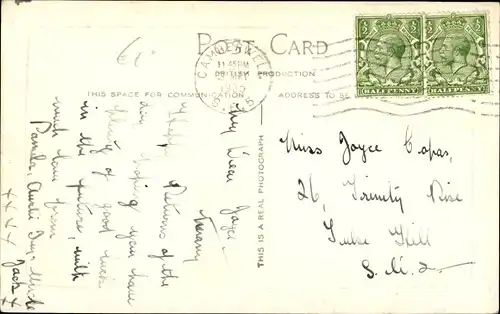 POST CARD
BRITISH PRODUCTION
THIS SPACE FOR COMMUNICATION
ADDRESS TO BE
THIS IS A REAL PHOTOGRAPH
CAMBERWELL
11.45PM
HALFPENNY
HALFPENNY
My Dear Joyce,
Many
Happy Returns of the
day hoping you have
plenty of good luck
in the future, with
much love from
Pamela, Auntie & Uncle
Jack
x x x x x
Miss Joyce Copas,
26, Trinity Rise
Tulse Hill
S.W.2